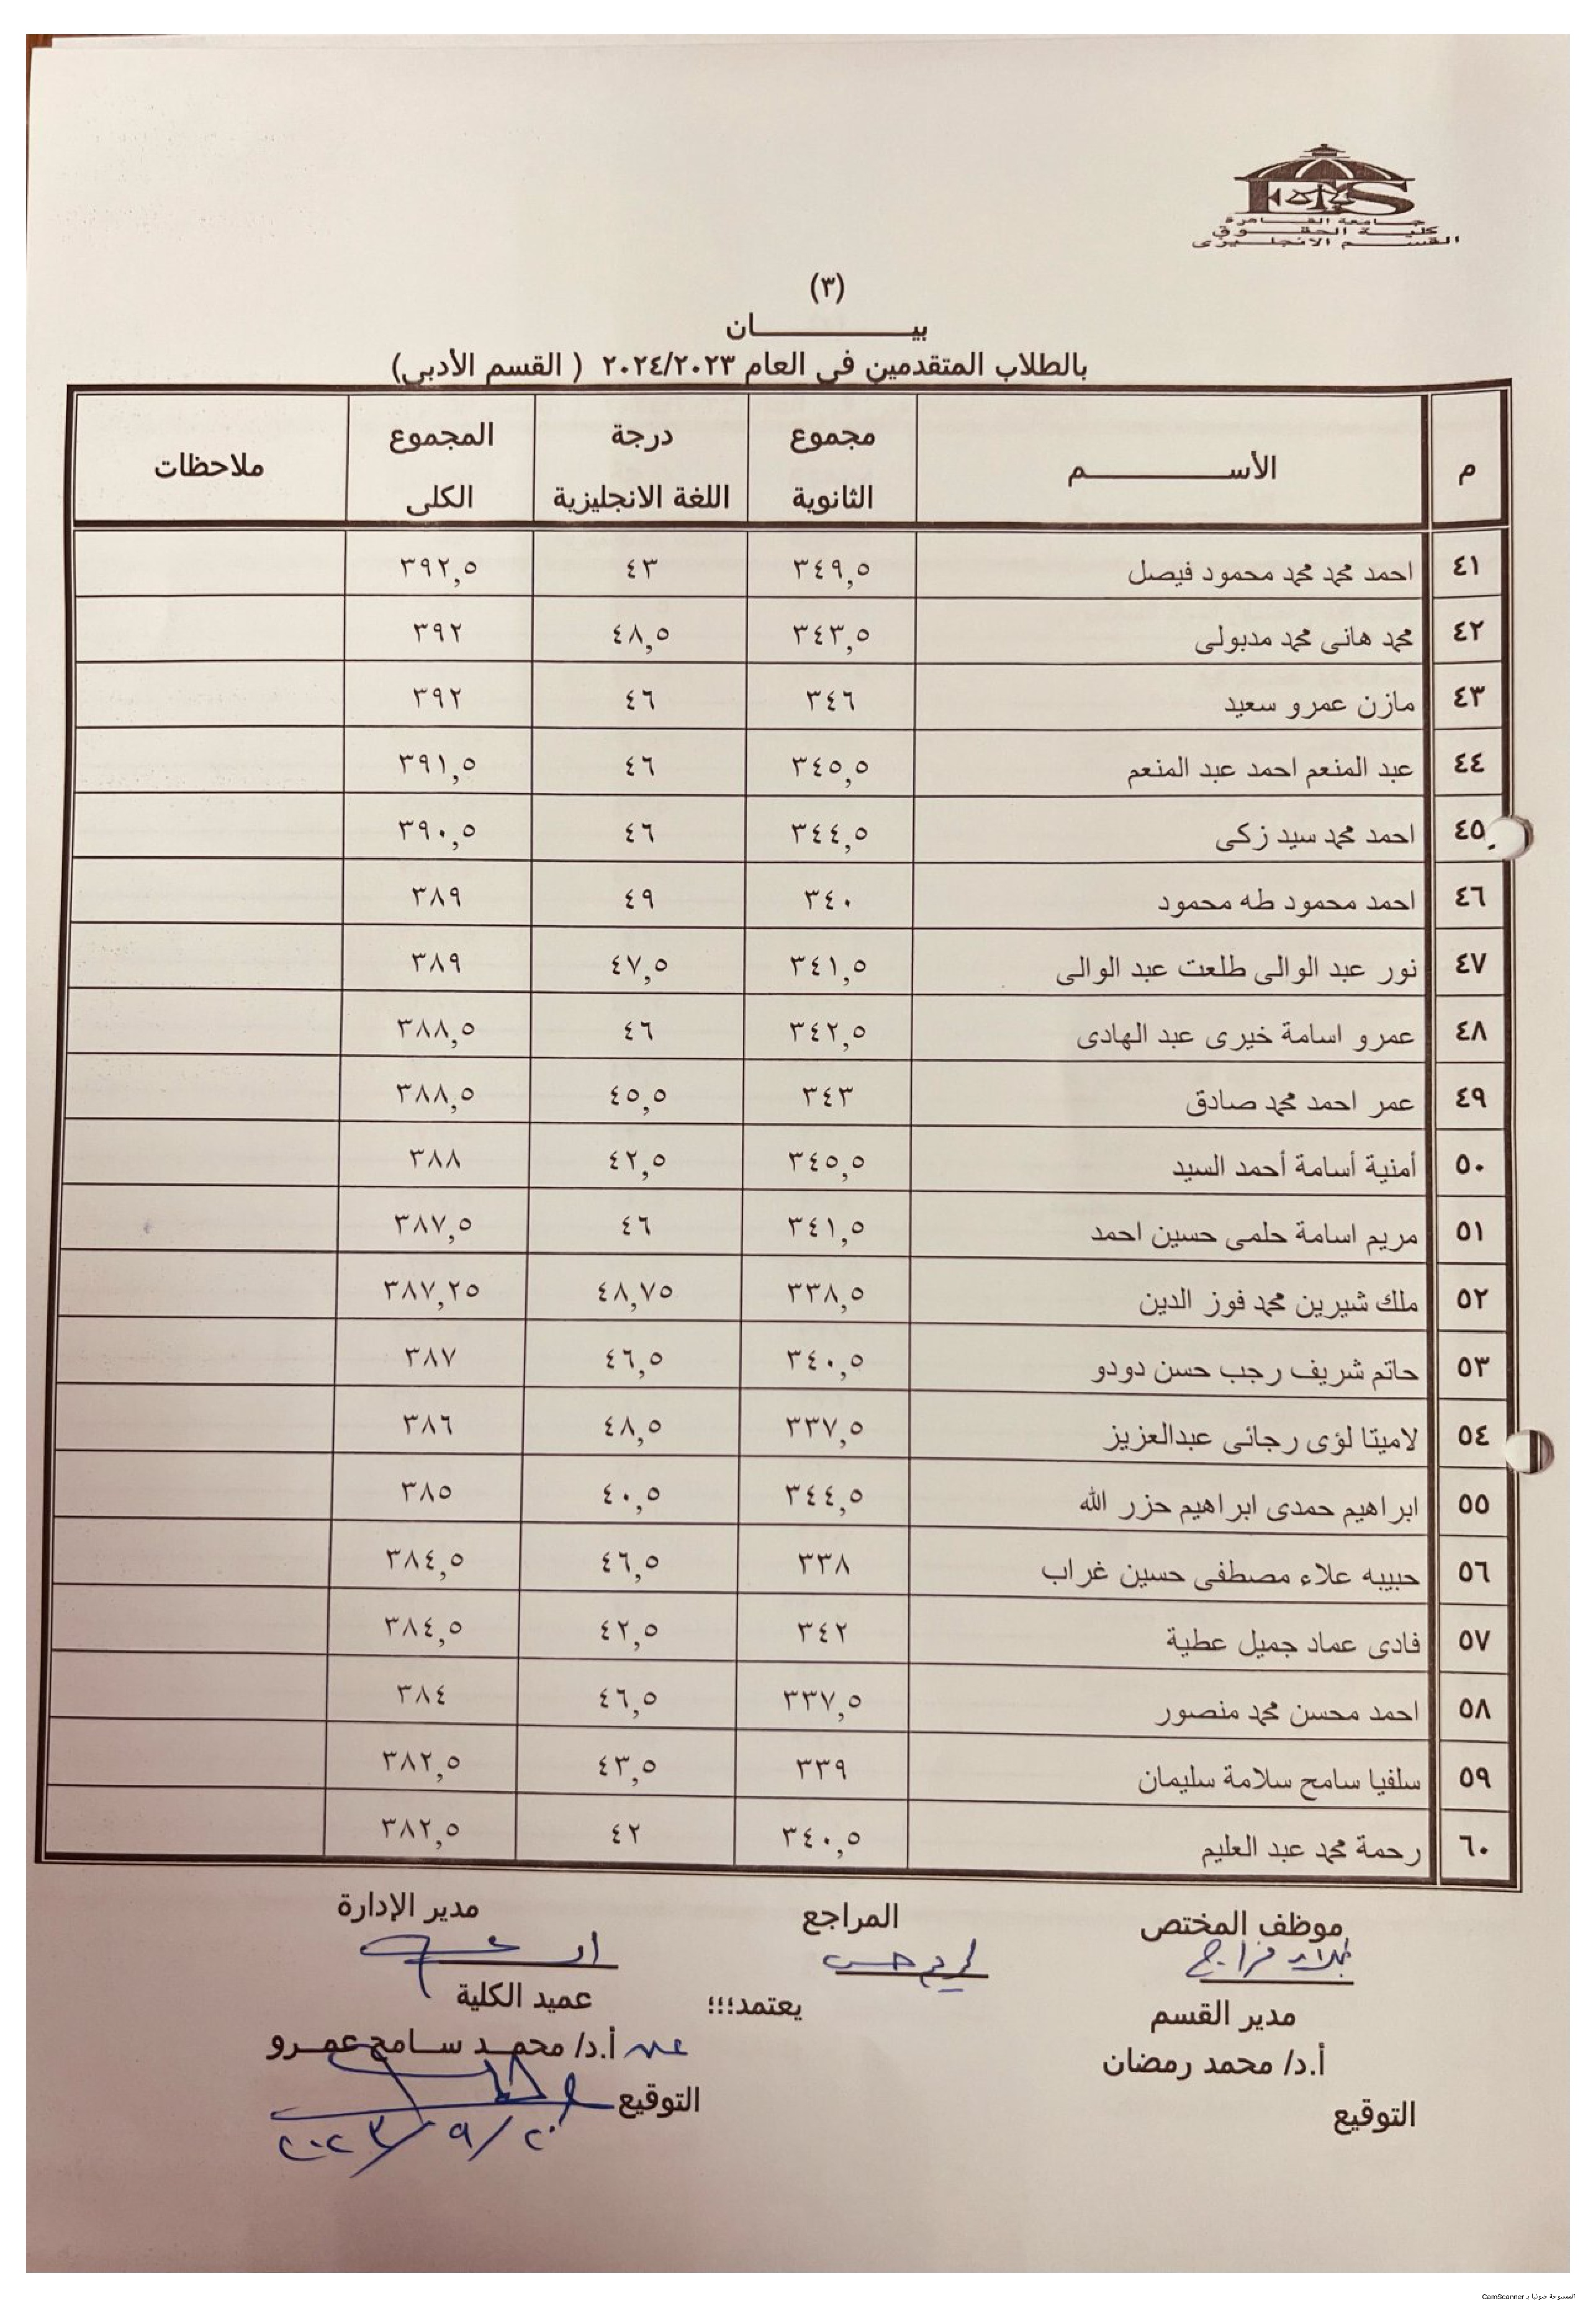 جامعة القاهرة
كلية الحقوق
القسم الانجليزى
(٣)
بيان
بالطلاب المتقدمين فى العام ٢٠٢٤/٢٠٢٣ ( القسم الأدبى)
م الأسم مجموع الثانوية درجة اللغة الانجليزية المجموع الكلى ملاحظات
٤١ احمد محمد محمد محمود فيصل ٣٤٩,٥ ٤٣ ٣٩٢,٥
٤٢ محمد هانى محمد مدبولى ٣٤٣,٥ ٤٨,٥ ٣٩٢
٤٣ مازن عمرو سعيد ٣٤٦ ٤٦ ٣٩٢
٤٤ عبد المنعم احمد عبد المنعم ٣٤٥,٥ ٤٦ ٣٩١,٥
٤٥ احمد محمد سيد زكى ٣٤٤,٥ ٤٦ ٣٩٠,٥
٤٦ احمد محمود طه محمود ٣٤٠ ٤٩ ٣٨٩
٤٧ نور عبد الوالى طلعت عبد الوالى ٣٤١,٥ ٤٧,٥ ٣٨٩
٤٨ عمرو اسامة خيرى عبد الهادى ٣٤٢,٥ ٤٦ ٣٨٨,٥
٤٩ عمر احمد محمد صادق ٣٤٣ ٤٥,٥ ٣٨٨,٥
٥٠ أمنية أسامة أحمد السيد ٣٤٥,٥ ٤٢,٥ ٣٨٨
٥١ مريم اسامة حلمى حسين احمد ٣٤١,٥ ٤٦ ٣٨٧,٥
٥٢ ملك شيرين محمد فوز الدين ٣٣٨,٥ ٤٨,٧٥ ٣٨٧,٢٥
٥٣ حاتم شريف رجب حسن دودو ٣٤٠,٥ ٤٦,٥ ٣٨٧
٥٤ لاميتا لؤى رجائى عبدالعزيز ٣٣٧,٥ ٤٨,٥ ٣٨٦
٥٥ ابراهيم حمدى ابراهيم حزر الله ٣٤٤,٥ ٤٠,٥ ٣٨٥
٥٦ حبيبه علاء مصطفى حسين غراب ٣٣٨ ٤٦,٥ ٣٨٤,٥
٥٧ فادى عماد جميل عطية ٣٤٢ ٤٢,٥ ٣٨٤,٥
٥٨ احمد محسن محمد منصور ٣٣٧,٥ ٤٦,٥ ٣٨٤
٥٩ سلفيا سامح سلامة سليمان ٣٣٩ ٤٣,٥ ٣٨٢,٥
٦٠ رحمة محمد عبد العليم ٣٤٠,٥ ٤٢ ٣٨٢,٥
موظف المختص المراجع مدير الإدارة
يعتمد؛؛؛ عميد الكلية
مدير القسم
أ.د/ محمد سامح عمرو
أ.د/ محمد رمضان
التوقيع التوقيع
٢٠٢٣/٩/٢٠
الممسوحة ضوئيا بـ CamScanner